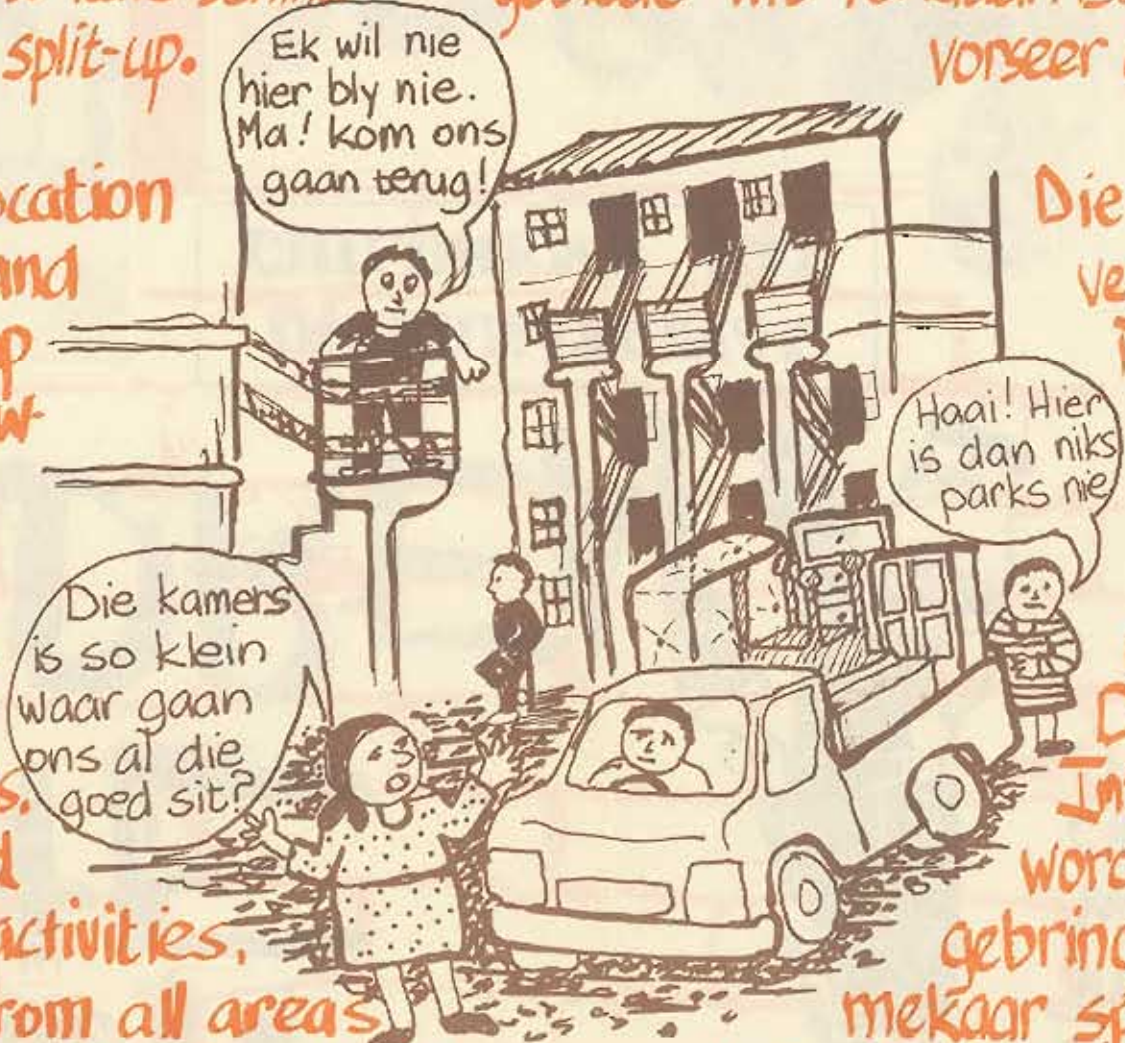 split-up.
vorseer
Ek wil nie
hier bly nie.
Ma! kom ons
gaan terug!
and
Die
Haai! Hier
is dan niks
parks nie
Die kamers
is so klein
waar gaan
ons al die
goed sit?
activities.
from all areas
gebring
mekaar